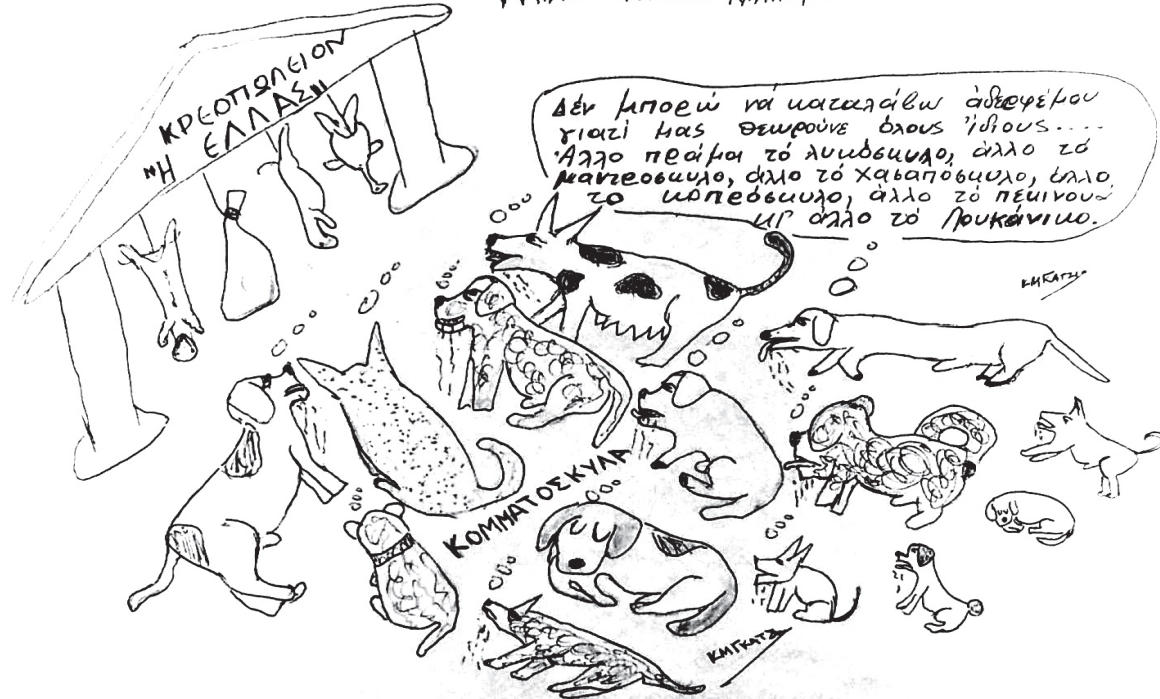 ΚΡΕΟΠΩΛΕΙΟΝ
"Η ΕΛΛΑΣ"
Δέν μπορώ νά καταλάβω ἀδερφέμου
γιατί μας θεωρούνε όλους ἴδιους....
Ἄλλο πράμα τό λυκόσκυλο, ἄλλο τό
μαντρόσκυλο, ἄλλο τό χασαπόσκυλο, ἄλλο
το κοπρόσκυλο, ἄλλο τό πεκινουά
κι ἄλλο τό Λουκάνικο.
ΚΜΓΚΑΤΖ
ΚΟΜΜΑΤΟΣΚΥΛΑ
ΚΜΓΚΑΤΖ